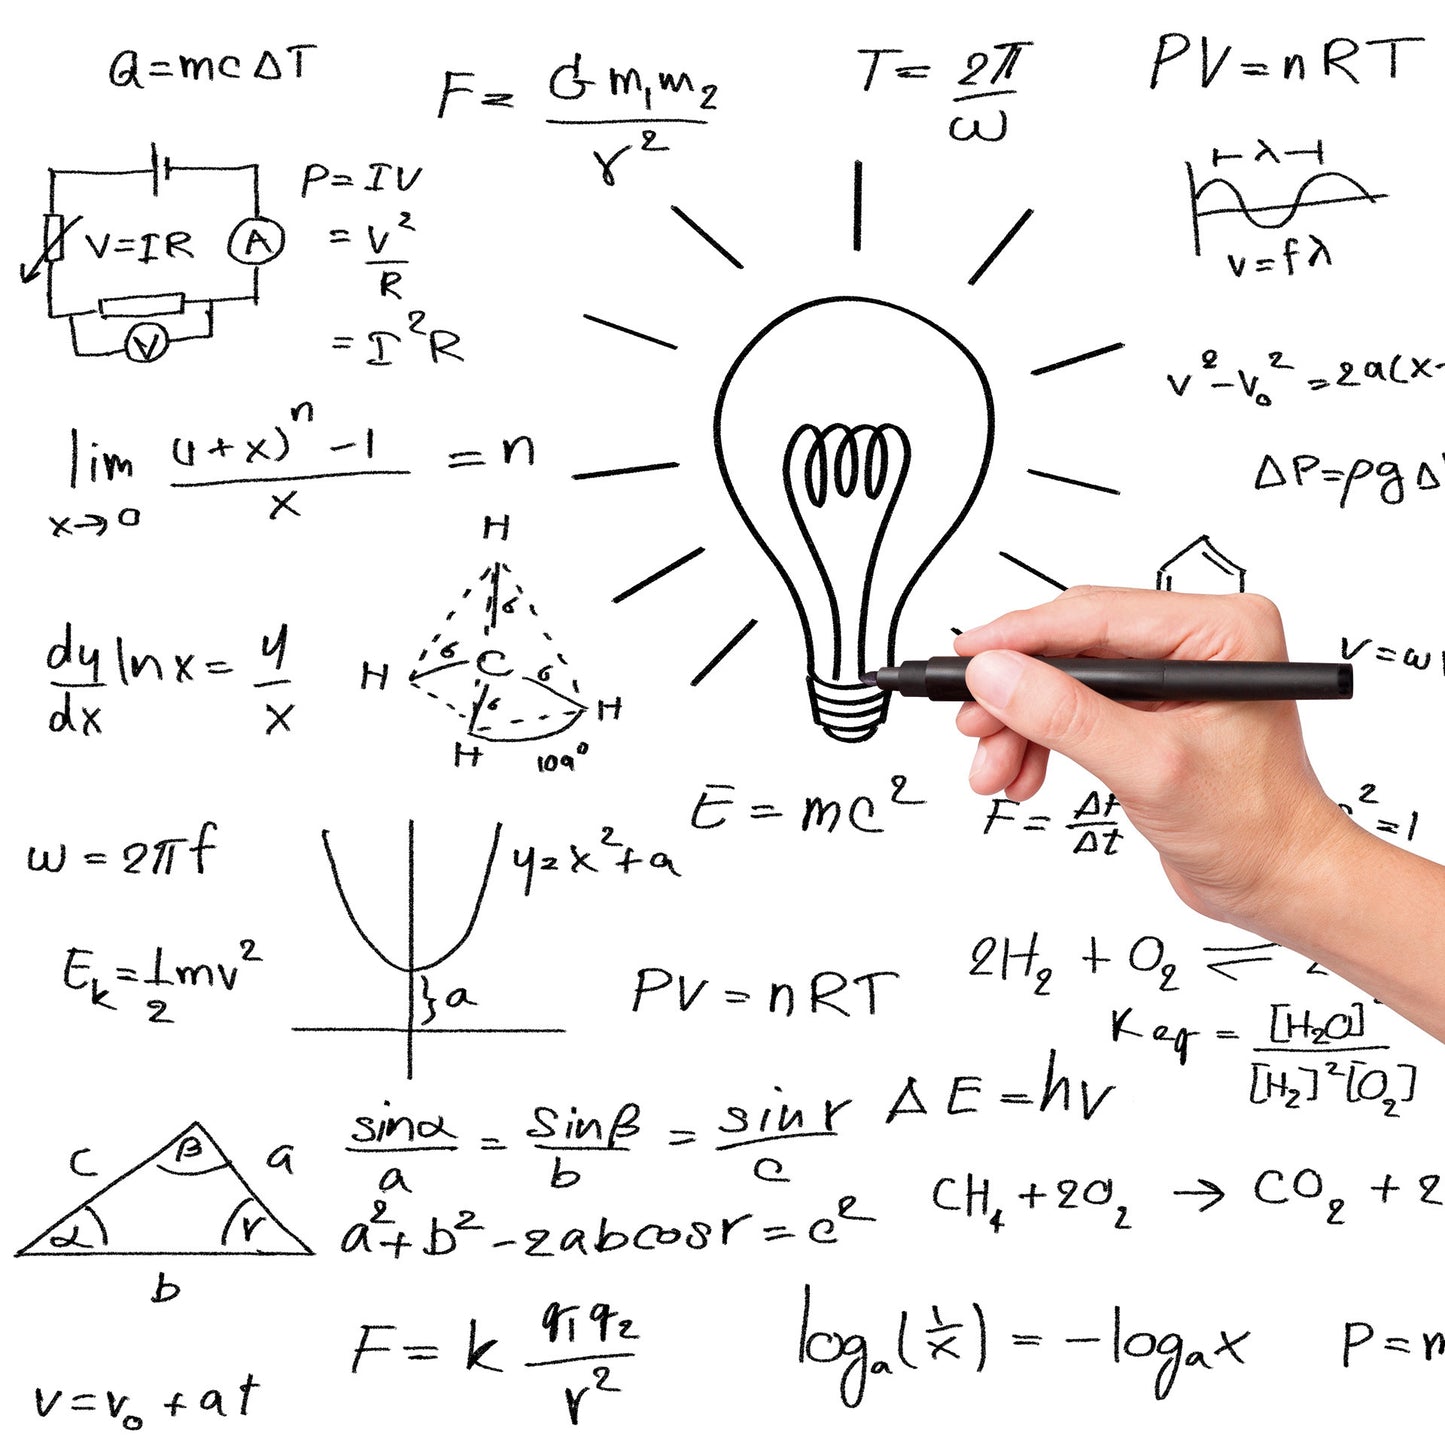 Q=mcΔT
F= G m₁m₂ / r²
T= 2π / ω
PV=nRT
V=IR
A
V
P=IV
= V² / R
= I²R
λ
v=fλ
v²-v₀²=2a(x-
lim x→0 (1+x)ⁿ-1 / x = n
ΔP=ρgΔ
H
H C H
H
σ σ σ σ
109°
dy/dx ln x = y/x
v=ω
E=mc²
F= Δ / Δt
²=1
ω=2πf
y=x²+a
a
Eₖ=½mv²
PV=nRT
2H₂+O₂ ⇌ 2
Keq = [H₂O] / [H₂]²[O₂]
ΔE=hv
c β a
α r
b
sinα/a = sinβ/b = sin r/c
a²+b²-2abcosr=c²
CH₄+2O₂ → CO₂+2
F=k q₁q₂ / r²
logₐ(1/x) = -logₐx
P=m
v=v₀+at